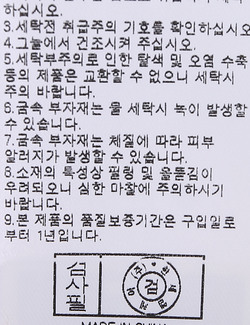 하십시오.
3.세탁전 취급주의 기호를 확인하십시오
4.그늘에서 건조시켜 주십시오.
5.세탁부주의로 인한 탈색 및 오염 수축
등의 제품은 교환할 수 없으니 세탁시
주의 바랍니다.
6.금속 부자재는 물 세탁시 녹이 발생할
수 있습니다.
7.금속 부자재는 체질에 따라 피부
알러지가 발생할 수 있습니다.
8.소재의 특성상 필링 및 올뜯김이
우려되오니 심한 마찰에 주의하시기
바랍니다.
9.본 제품의 품질보증기간은 구입일로
부터 1년입니다.
검사필
검